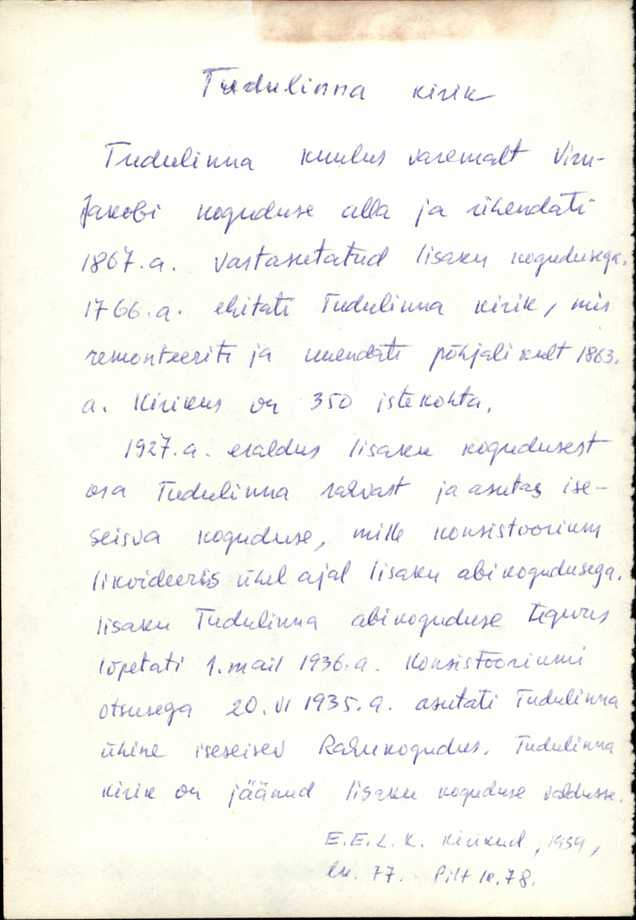 Tudulinna kirik
Tudulinna kuulus varemalt Viru-
Jakobi koguduse alla ja ühendati
1867.a. vastasutatud Iisaku kogudusega.
1766.a. ehitati Tudulinna kirik, mis
remonteeriti ja uuendati põhjalikult 1863.
a. Kirikus on 350 istekohta.
1927.a. eraldus Iisaku kogudusest
osa Tudulinna rahvast ja asutas ise-
seisva koguduse, mille konsistoorium
likvideeris ühel ajal Iisaku abikogudusega.
Iisaku Tudulinna abikoguduse tegevus
lõpetati 1. mail 1936.a. Konsistooriumi
otsusega 20.VI 1935.a. asutati Tudulinna
ühine iseseisev Rahukogudus. Tudulinna
kirik on jäänud Iisaku koguduse valdusse.
E.E.L.K. Kirikud, 1939,
lk. 77. Pilt lk. 78.